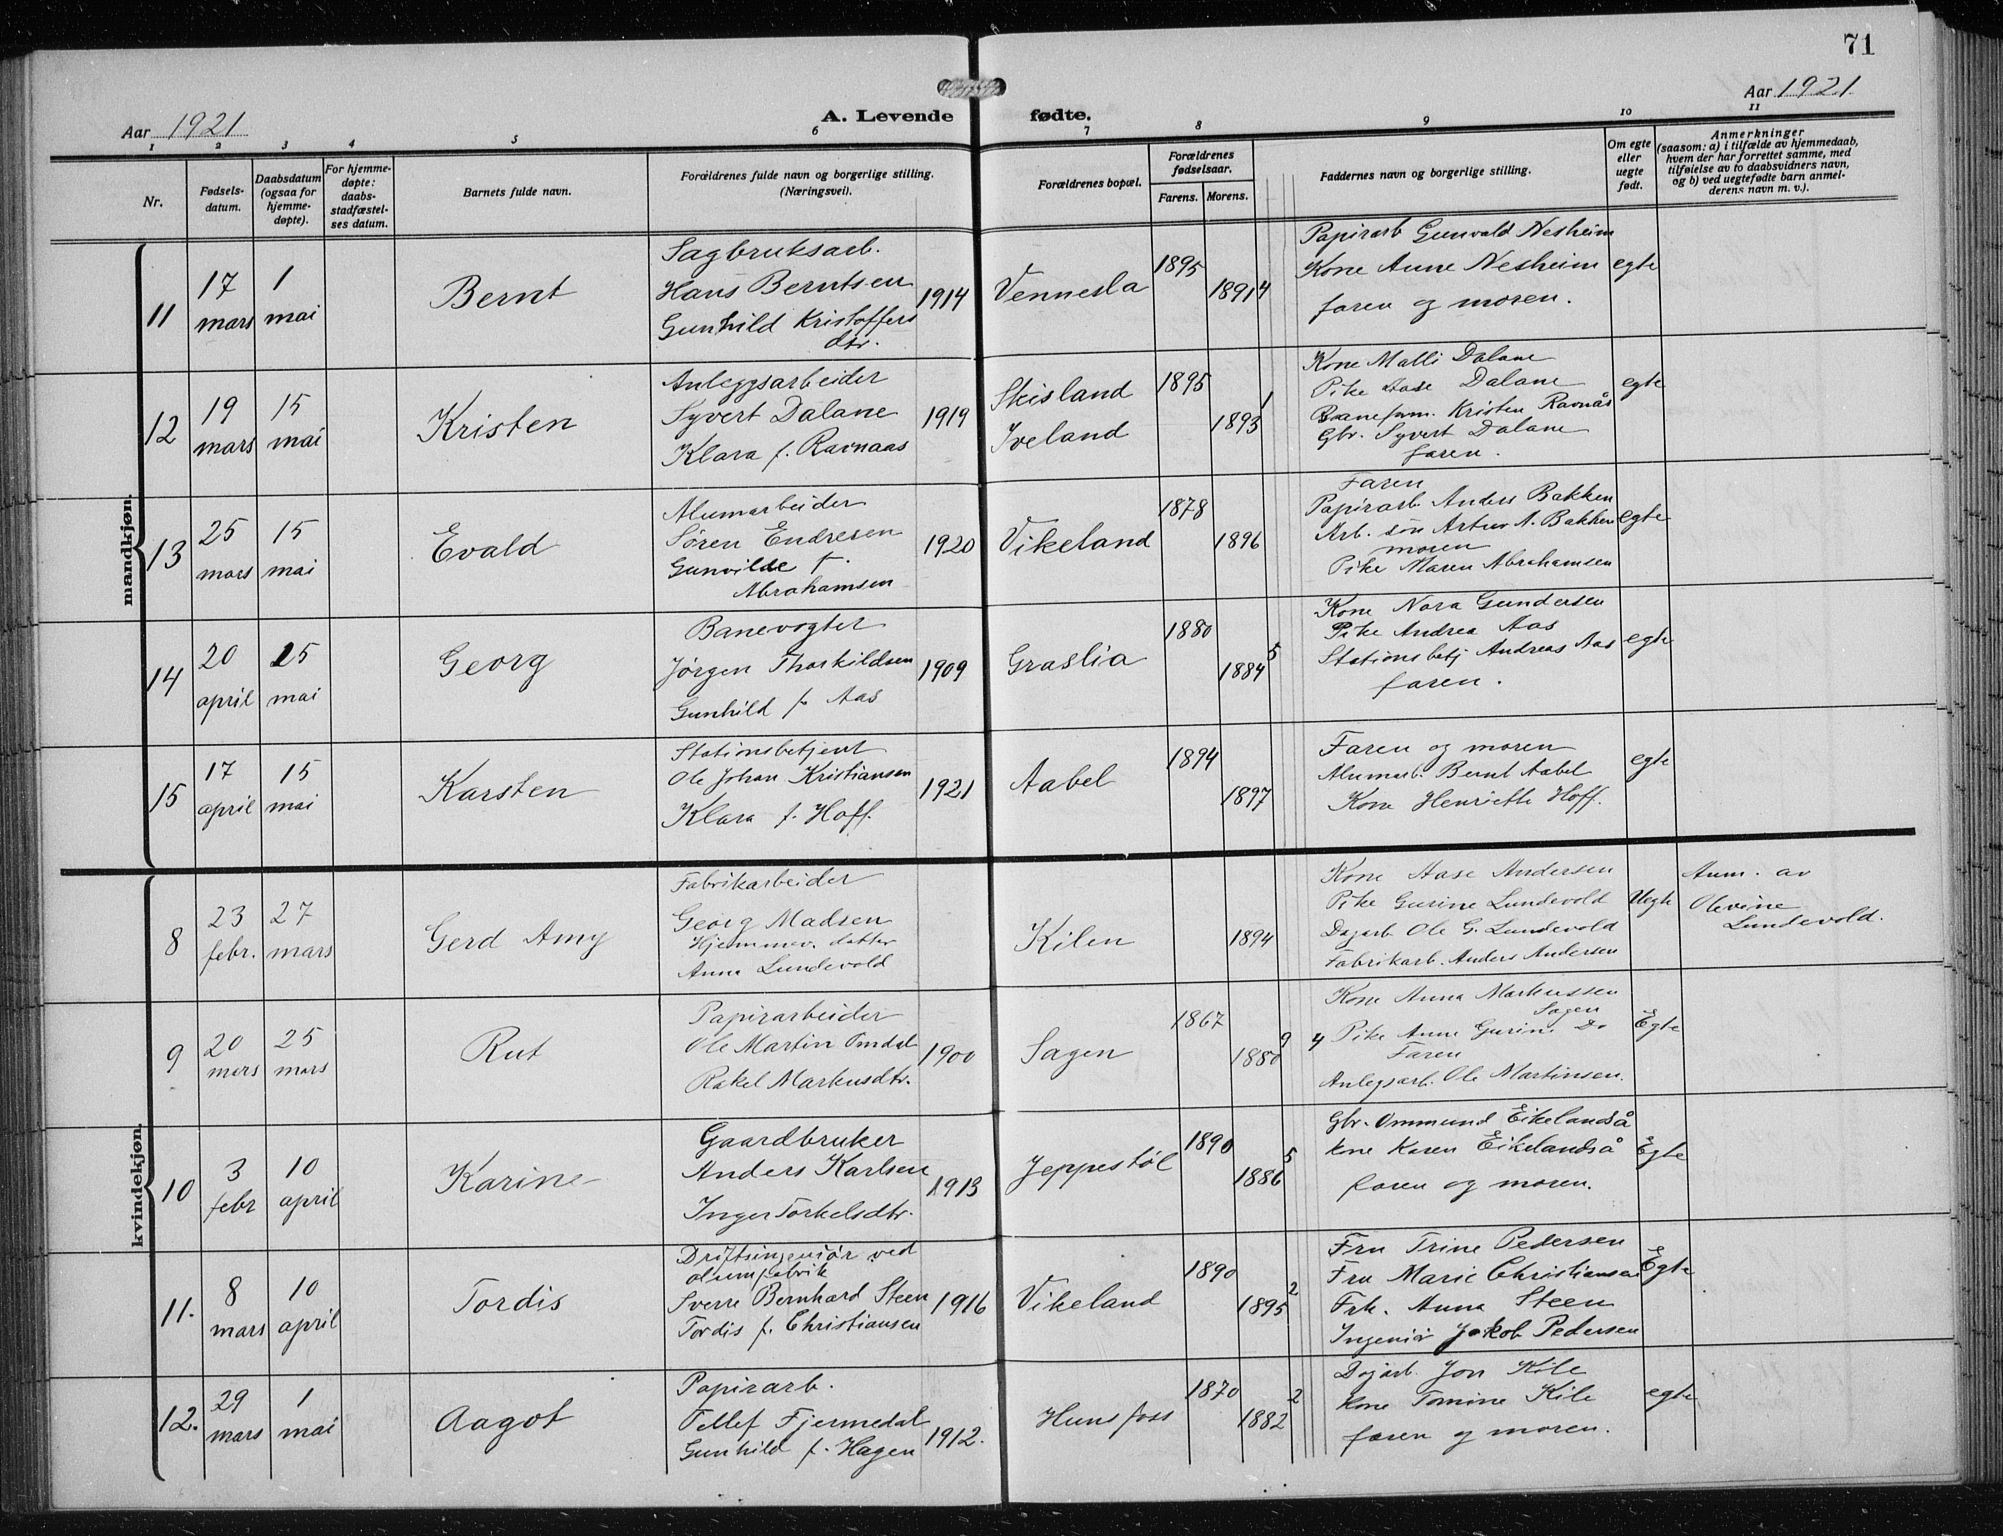 71
Aar 1921
A. Levende fødte.
Aar 1921
1 2 3 4 5 6 7 8 9 10 11
Nr.
Fødsels-
datum.
Daabsdatum
(ogsaa for
hjemme-
døpte).
For hjemme-
døpte:
daabs-
stadfæstel-
ses datum.
Barnets fulde navn.
Forældrenes fulde navn og borgerlige stilling.
(Næringsvei).
Forældrenes bopæl.
Forældrenes
fødselsaar.
Farens. Morens.
Faddernes navn og borgerlige stilling.
Om egte
eller
uegte
født.
Anmerkninger
(saasom: a) i tilfælde av hjemmedaab,
hvem der har forrettet samme, med
tilføielse av to daabsvidners navn,
og b) ved uegtefødte barn anmel-
derens navn m. v.).
mandkjøn.
11
17
mars
1
mai
Bernt
Sagbruksarb.
Hans Berntsen
Gunhild Kristoffers
dtr.
1914
Vennesla
1895
1891
4
Papirarb Gunvald Nesheim
Kone Anne Nesheim
faren og moren.
egte
12
19
mars
15
mai
Kristen
Anleggsarbeider
Syvert Dalane
Klara f. Ravnaas
1919
Skisland
Iveland
1895
1893
1
Kone Malli Dalane
Pike Aase Dalane
Baneform. Kristen Ravnås
Gbr. Syvert Dalane
faren.
egte
13
25
mars
15
mai
Evald
Alumarbeider
Søren Endresen
Gunvilde f.
Abrahamsen
1920
Vikeland
1878
1896
Faren
Papirarb. Anders Bakken
Arb. søn Artur A. Bakken
moren
Pike Maren Abrahamsen
egte
14
20
april
15
mai
Georg
Banevogter
Jørgen Thorkildsen
Gunhild f. Aas
1909
Graslia
1880
1884
5
Kone Nora Gundersen
Pike Andrea Aas
Stationsbetj Andreas Aas
faren.
egte
15
17
april
15
mai
Karsten
Stationsbetjent
Ole Johan Kristiansen
Klara f. Hoff.
1921
Aabel
1894
1897
Faren og moren
Alumarb. Bernt Aabel
Kone Henriette Hoff.
egte
kvindekjøn.
8
23
febr.
27
mars
Gerd Amy
Fabrikarbeider
Georg Madsen
Hjemmev. datter
Anna Lundevold
Kilen
1894
Kone Aase Andersen
Pike Gurine Lundevold
Dagarb. Ole G. Lundevold
Fabrikarb. Anders Andersen
Uegte
Anm. av
Olevine
Lundevold.
9
20
mars
25
mars
Rut
Papirarbeider
Ole Martin Omdal
Rakel Markusdtr.
1900
Sagen
1867
1880
9
4
Kone Anna Markussen
Sagen
Pike Anne Gurine Do
Faren
Anlegsarb. Ole Martinsen.
Egte
10
3
febr
10
april
Karine
Gaardbruker
Anders Karlsen
Inger Torkelsdtr.
1913
Jeppestøl
1890
1886
5
Gbr. Ommund Eikelandså
Kone Karen Eikelandså
faren og moren.
Egte
11.
8
mars
10
april
Tordis
Driftsingeniør ved
alumfabrik
Sverre Bernhard Steen
Tordis f. Christiansen
1916
Vikeland
1890
1895
2
Fru Trine Pedersen
Fru Marie Christiansen
Frk. Anna Steen
Ingeniør Jakob Pedersen
Egte
12.
29
mars
1
mai
Aagot
Papirarb.
Tellef Fjermedal
Gunhild f. Hagen
1912.
Hunsfoss
1870
1882
2
Dagarb. Jon Kile
Kone Tomine Kile
faren og moren.
egte